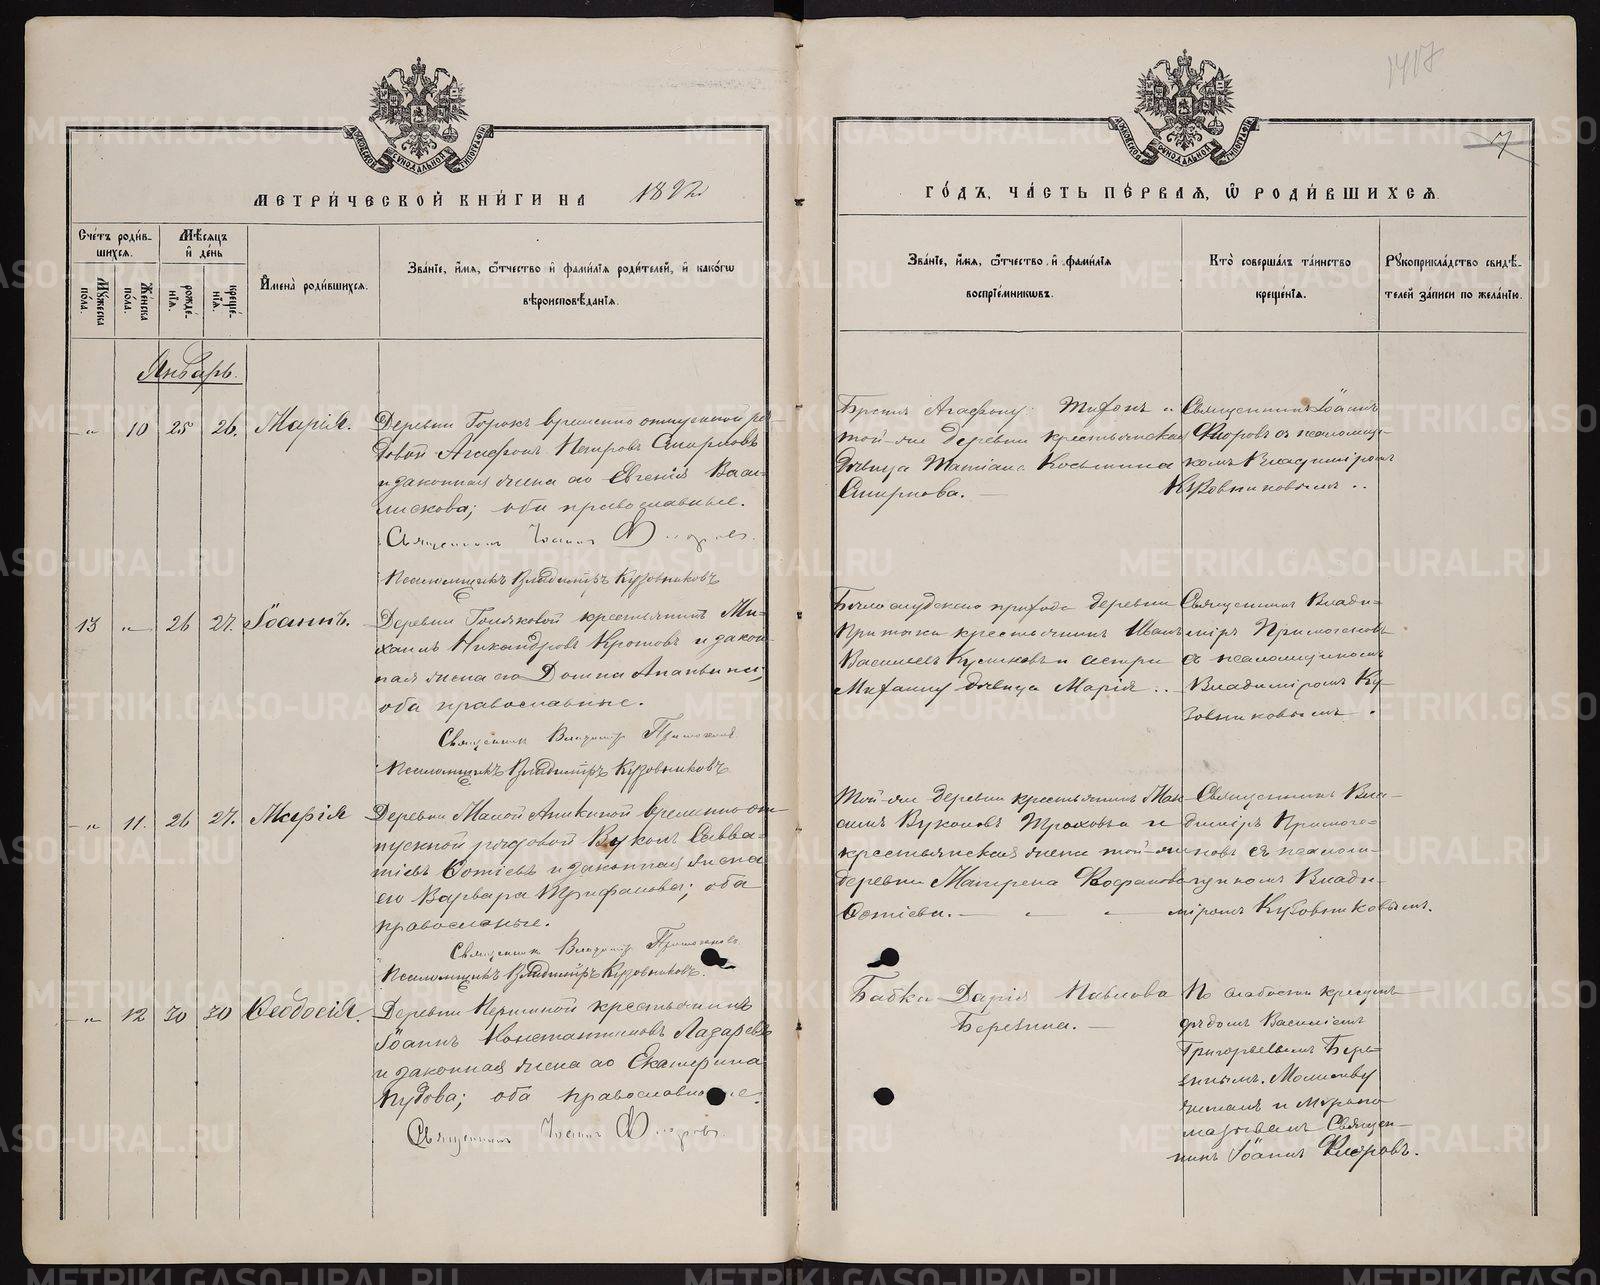 1417
7
МОСКОВСКОЙ СѴНОДАЛЬНОЙ ТИПОГРАФІИ
МОСКОВСКОЙ СѴНОДАЛЬНОЙ ТИПОГРАФІИ
МЕТРИ́ЧЕСКОЙ КНИ́ГИ НА 1892
ГО́ДЪ, ЧА́СТЬ ПЕ́РВАЯ, Ѡ҆ РОДИ́ВШИХСЯ.
Сче́тъ роди́вшихся.
Мꙋ́жеска по́ла.
Же́нска по́ла.
Мѣ́сяцъ и҆ де́нь
рожде́нїѧ.
креще́нїѧ.
И҆мена̀ роди́вшихсѧ.
Зва́нїе, и҆́мѧ, ѻ҆́тчество и҆ фами́лїѧ роди́телей, и҆ како́гѡ
вѣроисповѣ́данїѧ.
Зва́нїе, и҆́мѧ, ѻ҆́тчество и҆ фами́лїѧ
воспрїе́мникѡвъ.
Кто̀ соверша́лъ та́инство
креще́нїѧ.
Рꙋкоприкла́дство свидѣ́-
телей за́писи по жела́нїю.
Январь.
" 10 25 26. Марія.
Деревни Горокъ временно отпускной ря-
довой Агафонъ Петровъ Смирновъ
и законная жена его Евгенія Васи-
лискова; оба православные.
Священникъ Іоаннъ Флоровъ.
Псаломщикъ Владиміръ Кузовниковъ
Братъ Агафону: Тихонъ и
той-же деревни крестьянская
дѣвица Татіана Косьмина
Смирнова.
Священникъ Іоаннъ
Флоровъ съ псаломщи-
комъ Владиміромъ
Кузовниковымъ..
13 " 26 27. Іоаннъ.
Деревни Голяковой крестьянинъ Ми-
хаилъ Никандровъ Кротовъ и закон-
ная жена его Домна Ананьина;
оба православные.
Священник Владимір Примогенов
Псаломщикъ Владиміръ Кузовниковъ
прихода деревни
Притыка крестьянинъ Иванъ
Василіевъ и сестра
Михаилу дѣвица Марія..
Священникъ Влади-
міръ Примогеновъ
съ псаломщикомъ
Владиміромъ Ку-
зовниковымъ.
" 11. 26 27. Марія
Деревни Малой Аникиной временно от-
пускной рядовой Вуколъ Савва-
тіевъ Ѳотіевъ и законная жена
его Варвара Трифанова; оба
православные.
Священник Владимір Примогенов
Псаломщикъ Владиміръ Кузовниковъ.
Той-же деревни крестьянинъ
Вуколовъ и
крестьянская жена той-же
деревни Матрена
Ѳотіева. — " "
Священникъ Вла-
диміръ Примоге-
новъ съ псалом-
щикомъ Влади-
міромъ Кузовниковымъ.
" 12 30 30 Ѳеодосія.
Деревни Першиной крестьянинъ
Іоаннъ Константиновъ Лазаревъ
и законная жена его Екатерина
; оба православные.
Священникъ Іоаннъ Флоровъ.
Бабка Дарія Павлова
Березина.
По слабости крещенъ
дѣдомъ Василіемъ
Григорьевымъ Бере-
зинымъ. Молитву
читалъ и Мѵропо-
мазывалъ Священ-
никъ Іоаннъ Флоровъ.
METRIKI.GASO-URAL.RU